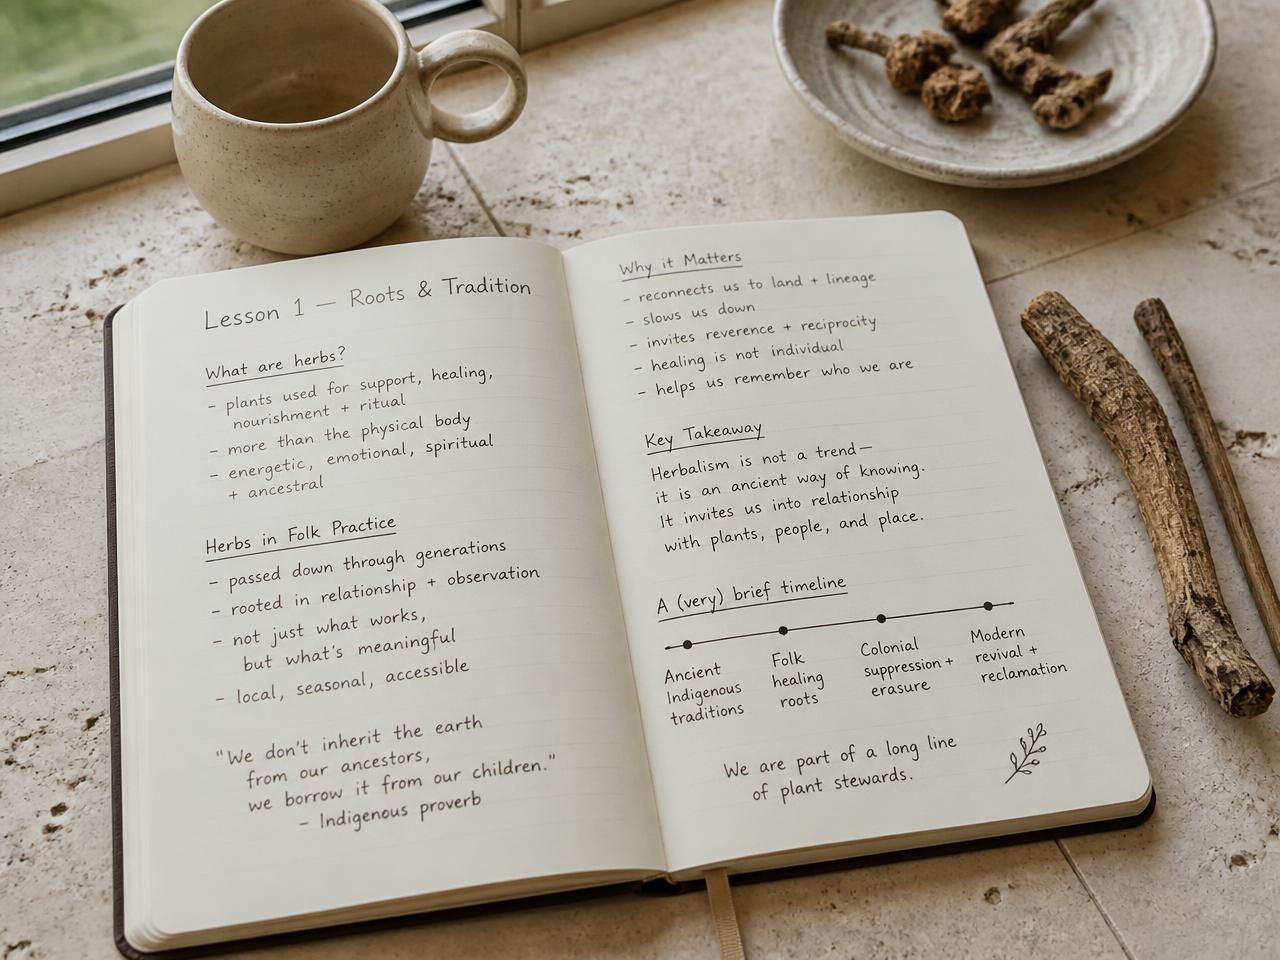 Lesson 1 — Roots & Tradition
What are herbs?
- plants used for support, healing,
nourishment + ritual
- more than the physical body
- energetic, emotional, spiritual
+ ancestral
Herbs in Folk Practice
- passed down through generations
- rooted in relationship + observation
- not just what works,
but what's meaningful
- local, seasonal, accessible
"We don't inherit the earth
from our ancestors,
we borrow it from our children."
- Indigenous proverb
Why it Matters
- reconnects us to land + lineage
- slows us down
- invites reverence + reciprocity
- healing is not individual
- helps us remember who we are
Key Takeaway
Herbalism is not a trend—
it is an ancient way of knowing.
It invites us into relationship
with plants, people, and place.
A (very) brief timeline
Ancient
Indigenous
traditions
Folk
healing
roots
Colonial
suppression +
erasure
Modern
revival +
reclamation
We are part of a long line
of plant stewards.